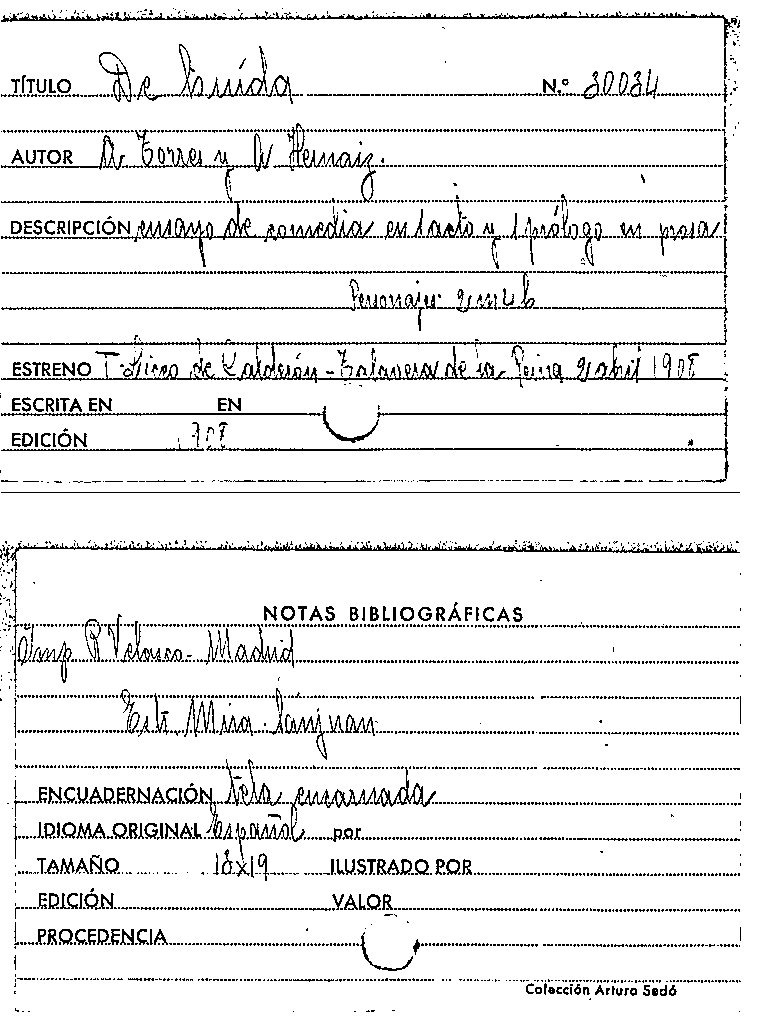 TÍTULO De huída N.º 30034
AUTOR A. Torres y A. Hernaiz.
DESCRIPCIÓN ensayo de comedia en 1 acto y 1 prólogo en prosa
Personajes 2 m 2 h
ESTRENO T. Liceo de Calderón - Talavera de la Reina 2 abril 1908
ESCRITA EN EN
EDICIÓN 1908
NOTAS BIBLIOGRÁFICAS
Imp R Velasco - Madrid
Mira Sanjuan
ENCUADERNACIÓN tela encarnada
IDIOMA ORIGINAL Español por
TAMAÑO 13x19 ILUSTRADO POR
EDICIÓN VALOR
PROCEDENCIA
Colección Arturo Sedó